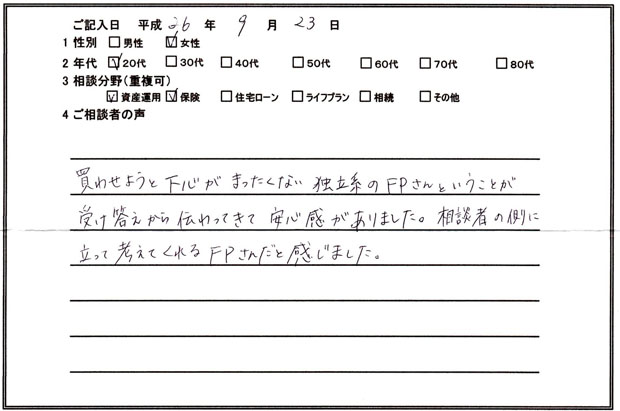 ご記入日 平成 26 年 9 月 23 日
1 性別 □男性 ☑女性
2 年代 ☑20代 □30代 □40代 □50代 □60代 □70代 □80代
3 相談分野(重複可)
☑資産運用 ☑保険 □住宅ローン □ライフプラン □相続 □その他
4 ご相談者の声
買わせようと下心がまったくない独立系のFPさんということが
受け答えから伝わってきて安心感がありました。相談者の側に
立って考えてくれるFPさんだと感じました。